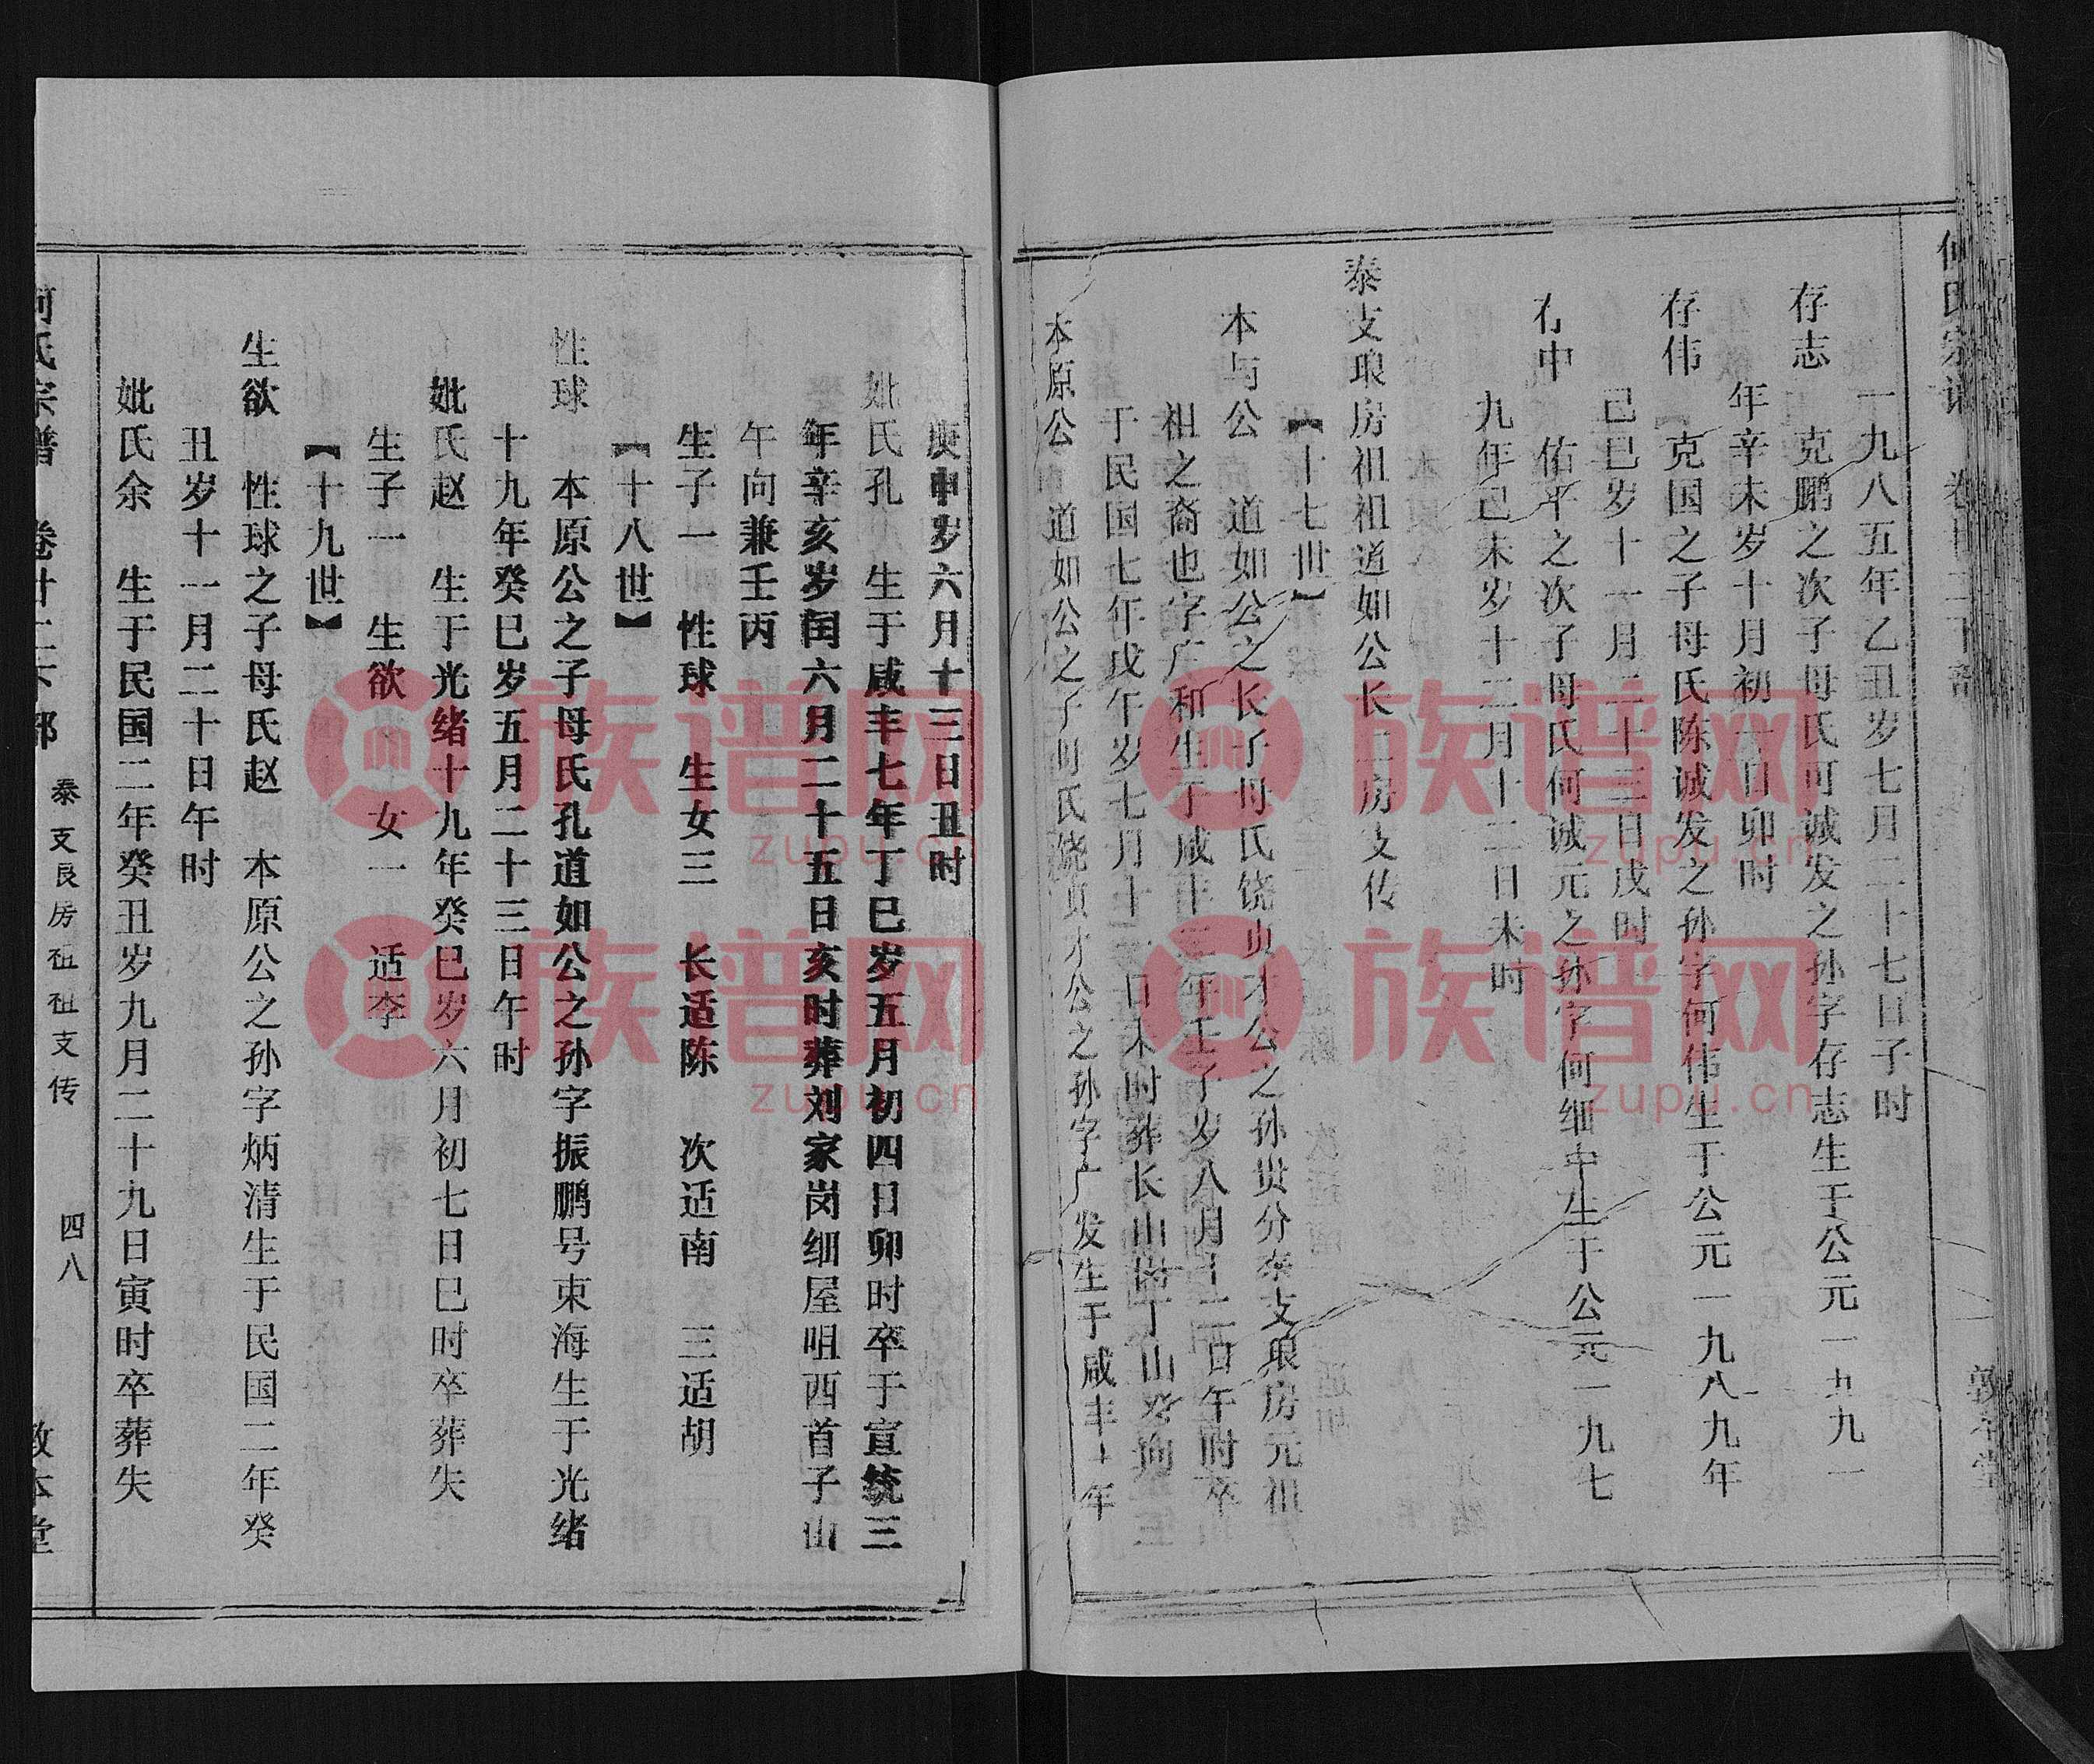 何氏宗谱 卷廿二下部 敦本堂
一九八五年乙丑岁七月二十七日子时
存志 克鹏之次子母氏何诚发之孙字存志生于公元一九九一
年辛未岁十月初一日卯时
存伟 克国之子母氏陈诚发之孙字何伟生于公元一九八九年
己巳岁十一月二十三日戌时
存中 佑平之次子母氏何诚元之孙字何细中生于公元一九七
九年己未岁十二月十二日未时
泰支琅房祖祖道如公长二房支传
【十七世】
本与公 道如公之长子母氏饶贞才公之孙贵分泰支琅房元祖
祖之裔也字广和生于咸丰二年壬子岁八月十二日午时卒
于民国七年戊午岁七月十二日未时葬长山 丁山癸向
本原公 道如公之子母氏饶贞才公之孙字广发生于咸丰十年
庚申岁六月十三日丑时
妣氏孔 生于咸丰七年丁巳岁五月初四日卯时卒于宣统三
年辛亥岁闰六月二十五日亥时葬刘家岗细屋咀西首子山
午向兼壬丙
生子一 性球 生女三 长适陈 次适南 三适胡
【十八世】
性球 本原公之子母氏孔道如公之孙字振鹏号束海生于光绪
十九年癸巳岁五月二十三日午时
妣氏赵 生于光绪十九年癸巳岁六月初七日巳时卒葬失
生子一 生欲 女一 适李
【十九世】
生欲 性球之子母氏赵 本原公之孙字炳清生于民国二年癸
丑岁十一月二十日午时
妣氏余 生于民国二年癸丑岁九月二十九日寅时卒葬失
何氏宗谱 卷廿二下部 泰支良房祖祖支传 四八 敦本堂
族谱网
zupu.cn
族谱网
zupu.cn
族谱网
zupu.cn
族谱网
zupu.cn